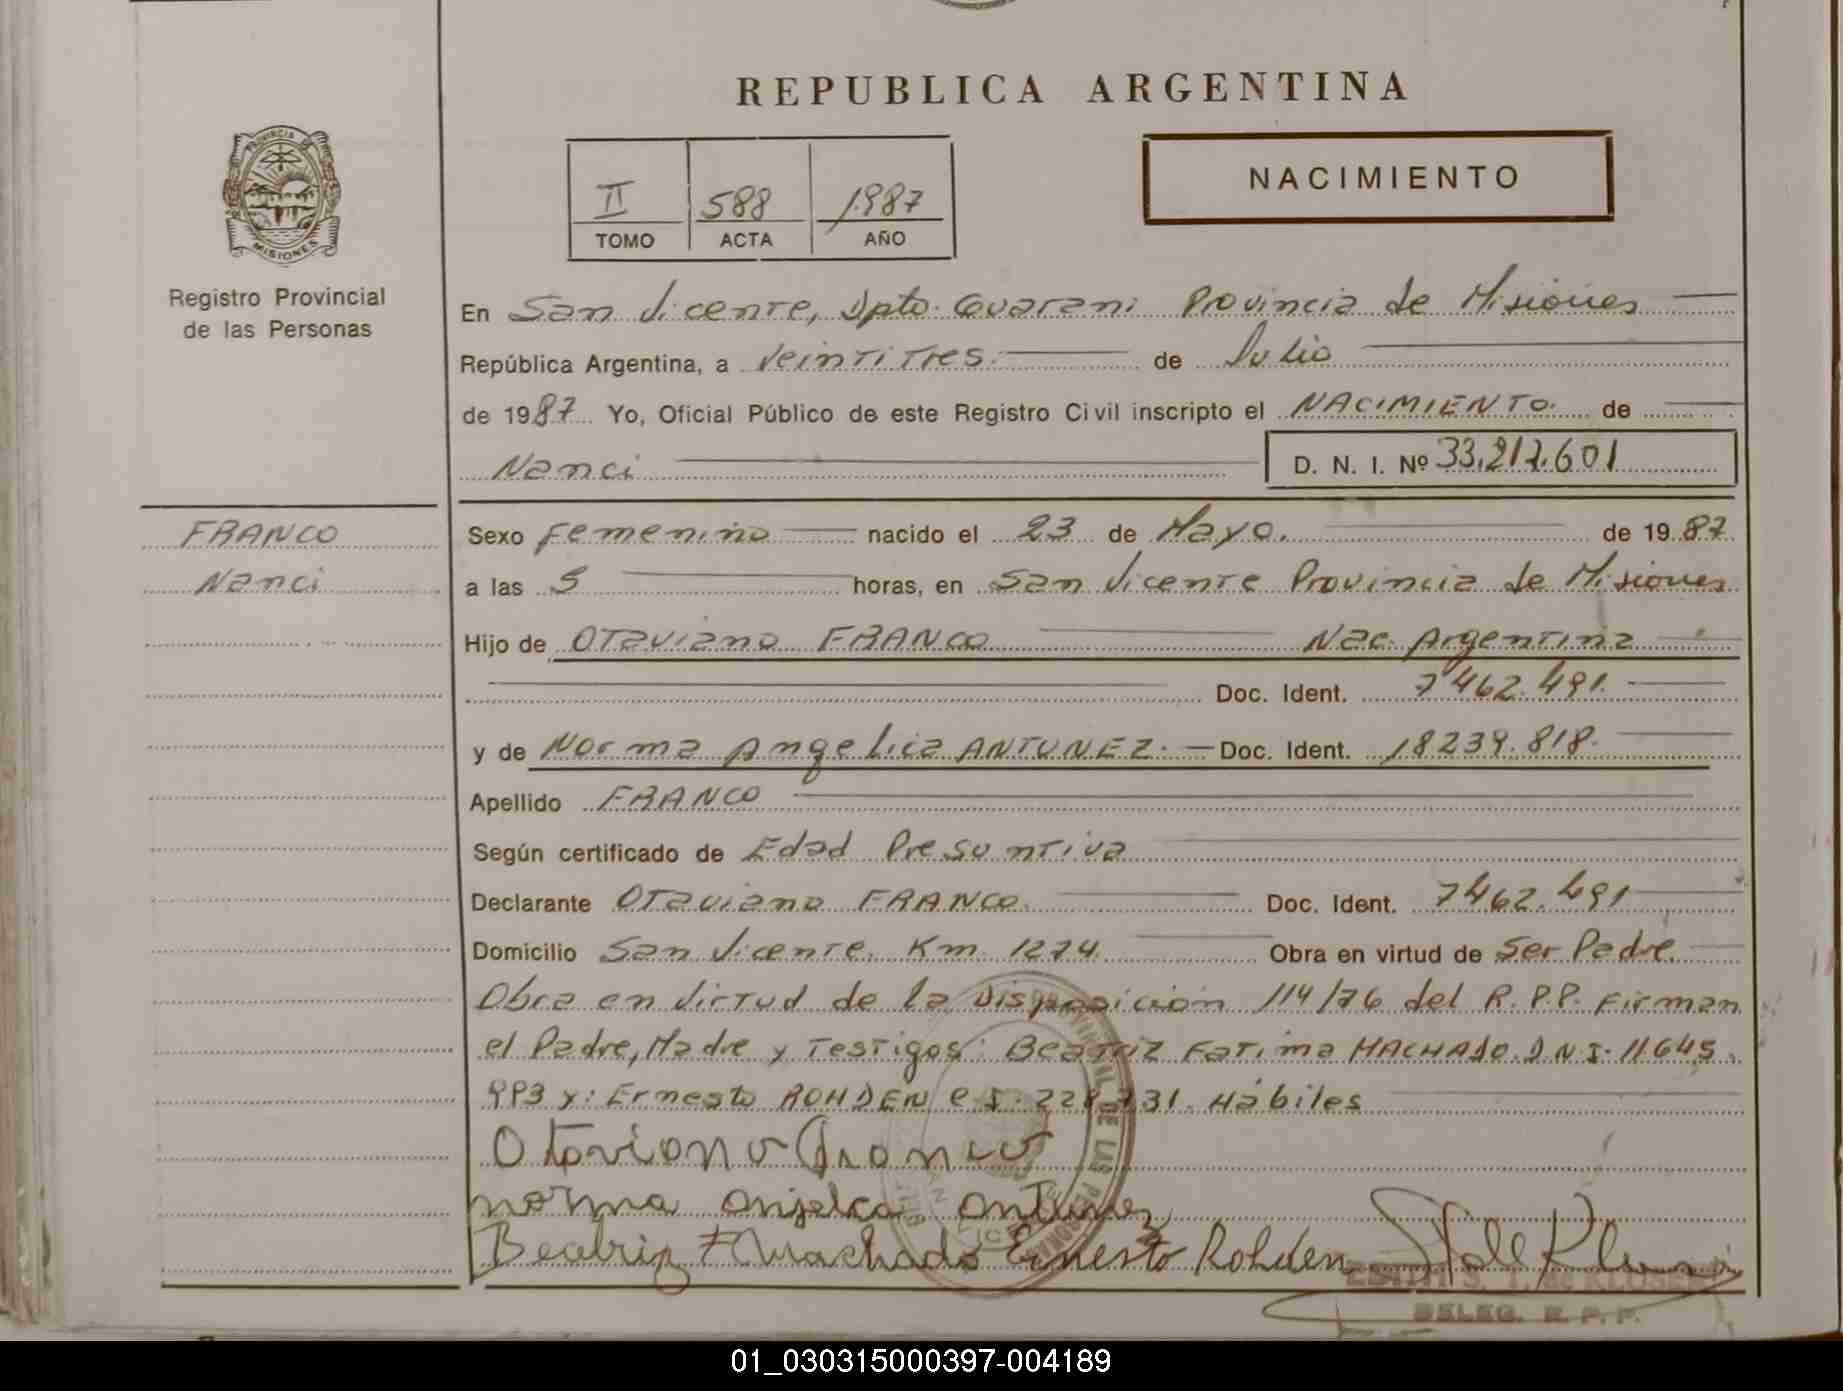 REPUBLICA ARGENTINA
PROVINCIA DE
MISIONES
Registro Provincial
de las Personas
II 588 1987
TOMO ACTA AÑO
NACIMIENTO
En San Vicente, Dpto. Guarani Provincia de Misiones
República Argentina, a Veintitres de Julio
de 1987 Yo, Oficial Público de este Registro Civil inscripto el NACIMIENTO. de
Nanci D. N. I. Nº 33.217.601
FRANCO
Nanci
Sexo Femenino nacido el 23 de Mayo. de 1987
a las 5 horas, en San Vicente Provincia de Misiones
Hijo de Otaviano FRANCO Nac. Argentina
Doc. Ident. 7.462.491.
y de Norma Angelica ANTUNEZ. Doc. Ident. 18.239.818.
Apellido FRANCO
Según certificado de Edad Presuntiva
Declarante Otaviano FRANCO. Doc. Ident. 7.462.491
Domicilio San Vicente, Km 1274. Obra en virtud de Ser Padre.
Obra en Virtud de la Disposicion 114/76 del R.P.P. Firman
el Padre, Madre y Testigos: Beatriz Fatima MACHADO. D.N.I. 11.645.
993 y: Ernesto ROHDEN C.I. 228.731. Hábiles
Otaviano Franco
norma anjelca antunez
Beatriz F Machado Ernesto Rohden
DELEG. R. P. P.
01_030315000397-004189